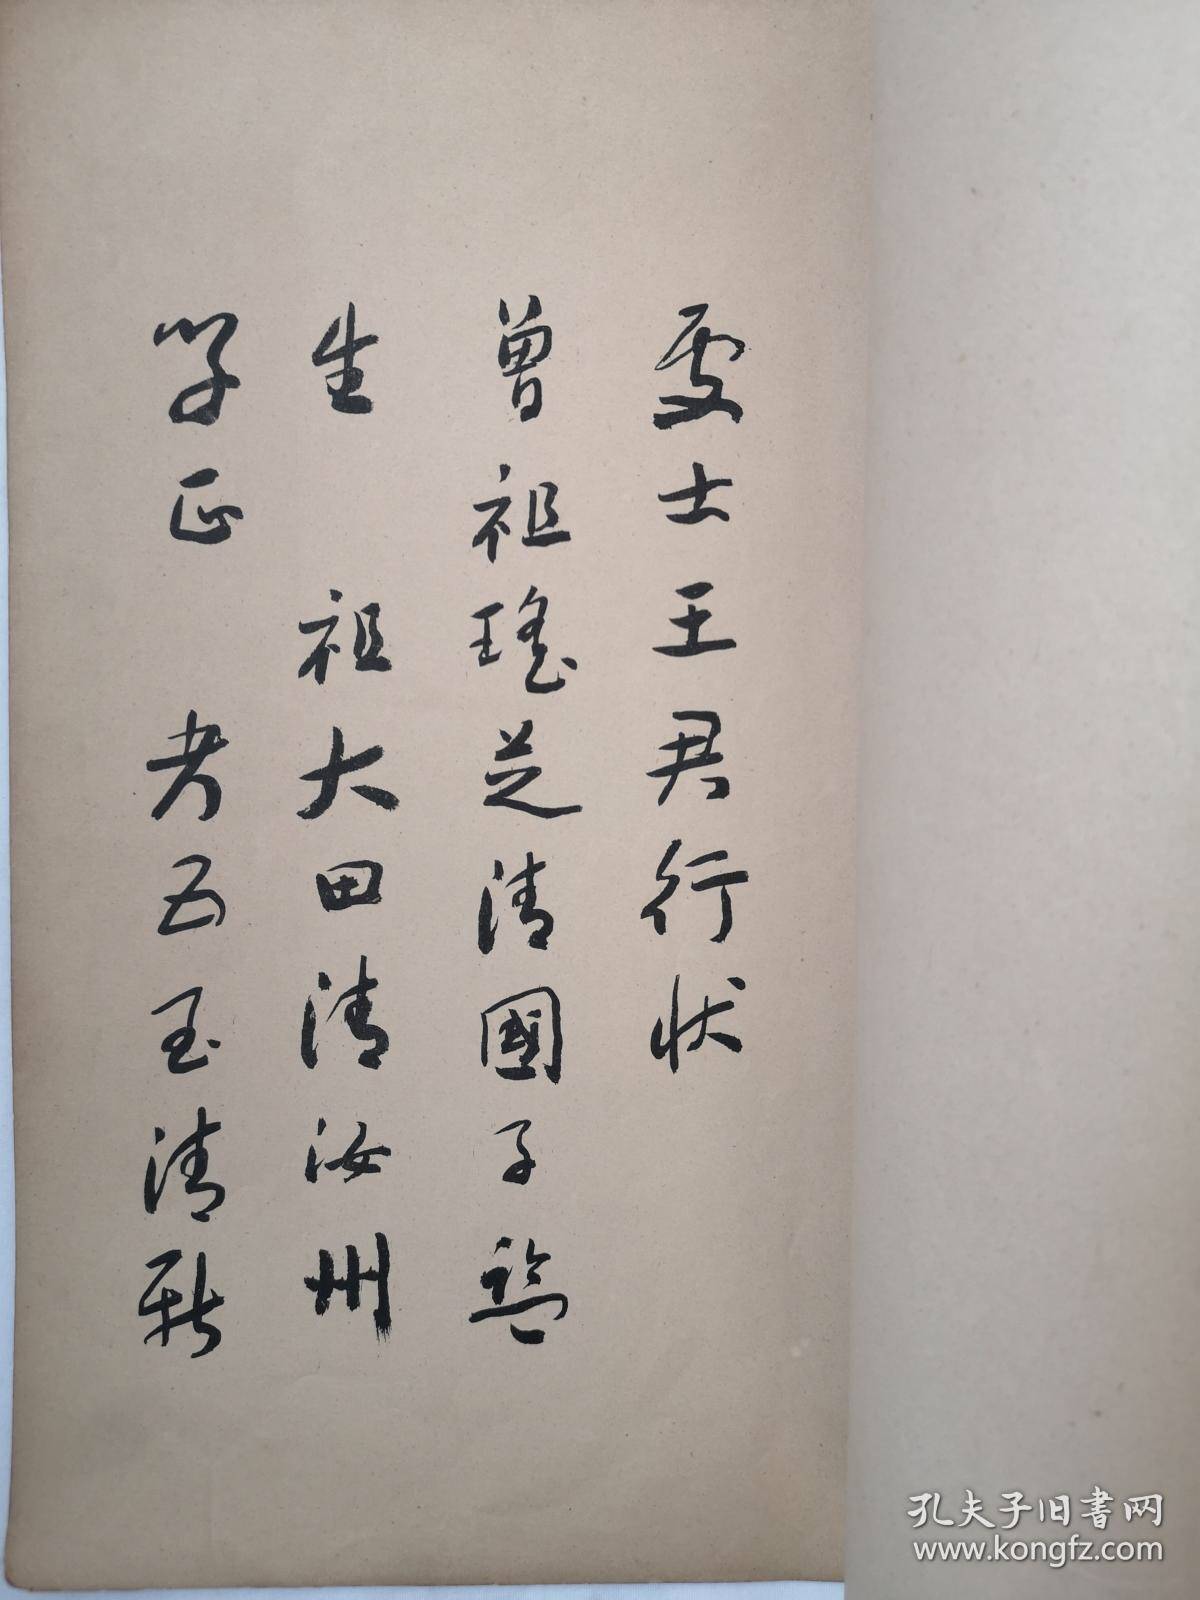 處士王君行狀
曾祖瑤芝清國子監
生　祖大田清汝州
學正　考五玉清新
孔夫子旧書网
www.kongfz.com